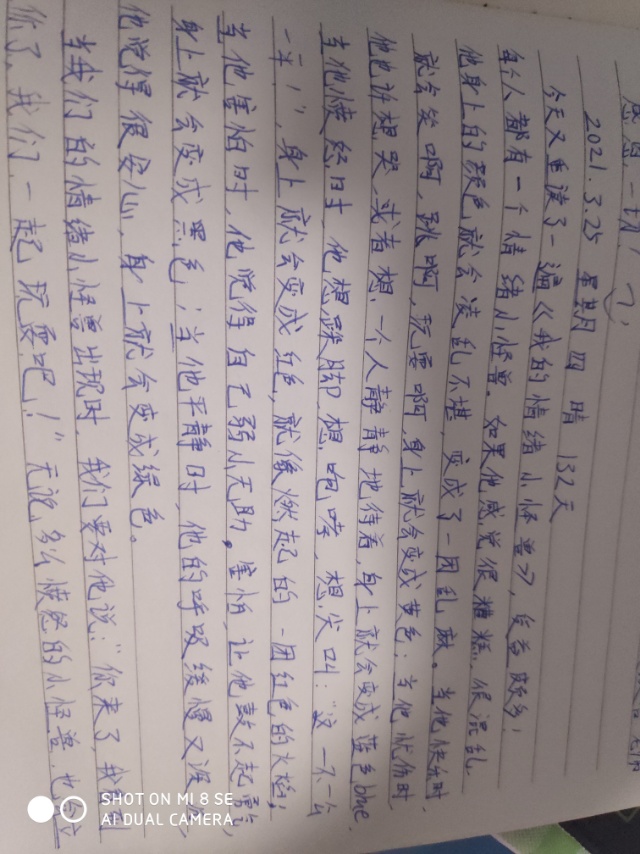 感恩一切!
2021.3.25 星期四 晴 132天
今天又重读了一遍《我的情绪小怪兽》,受益颇多!
每个人都有一个情绪小怪兽。如果他感觉很糟糕,很混乱
他身上的颜色就会凌乱不堪,变成了一团乱麻。当他快乐时
就会笑啊,跳啊,玩耍啊,身上就会变成黄色;当他忧伤时,
他也许想哭,或者想一个人静静地待着,身上就会变成蓝色blue.
当他愤怒时,他想跺脚,想咆哮,想尖叫:“这一不一公
一平!”,身上就会变成红色,就像燃起的一团红色的火焰;
当他害怕时,他觉得自己弱小无助。害怕让他鼓不起勇气,
身上就会变成黑色;当他平静时,他的呼吸缓慢又深
他觉得很安心,身上就会变成绿色。
当我们的情绪小怪兽出现时,我们要对他说:“你来了,我
你了。我们一起玩耍吧!”无论多么愤怒的小怪兽,也
SHOT ON MI 8 SE
AI DUAL CAMERA